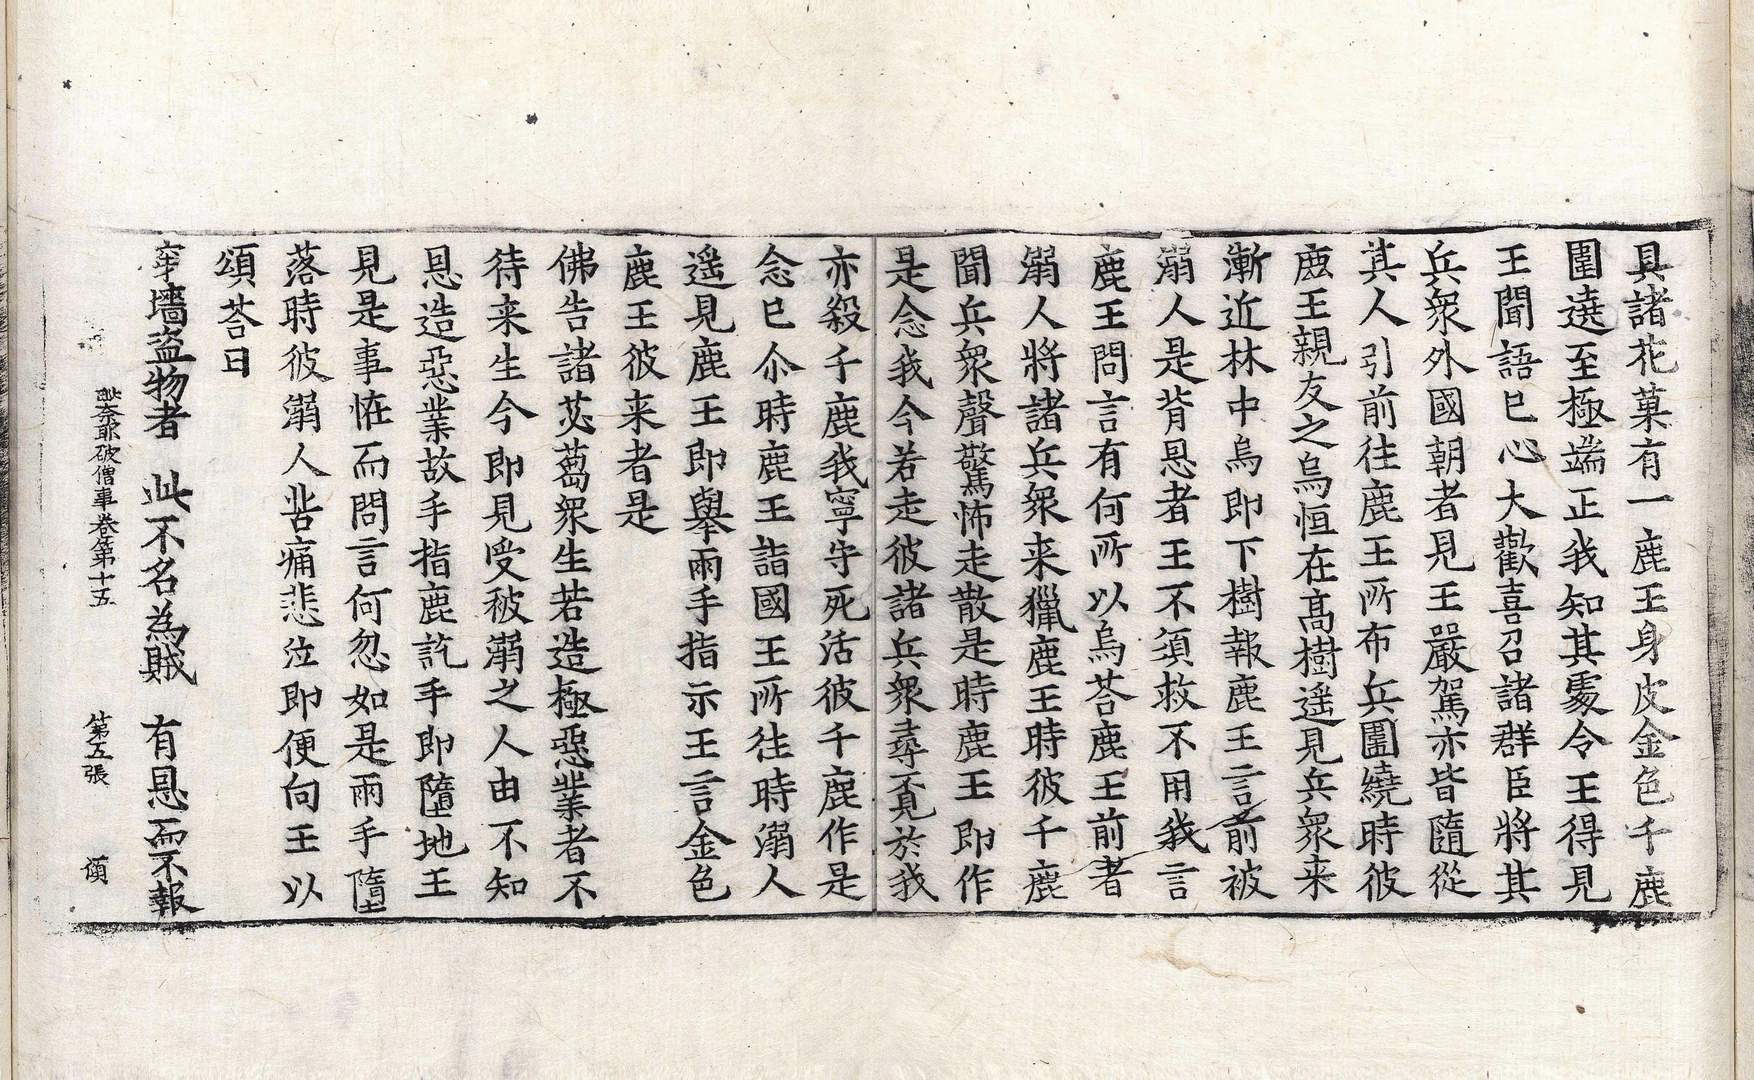 具諸花菓有一鹿王身皮金色千鹿
圍遶至極端正我知其處令王得見
王聞語已心大歡喜召諸群臣將其
兵衆外國朝者見王嚴駕亦皆隨從
其人引前往鹿王所布兵圍繞時彼
鹿王親友之烏恒在高樹遥見兵衆来
漸近林中烏即下樹報鹿王言前被
溺人是背恩者王不須救不用我言
鹿王問言有何所以烏荅鹿王前者
溺人將諸兵衆来獵鹿王時彼千鹿
聞兵衆聲驚怖走散是時鹿王即作
是念我今若走彼諸兵衆尋覓於我
亦殺千鹿我寧守死活彼千鹿作是
念已尒時鹿王詣國王所往時溺人
遥見鹿王即舉兩手指示王言金色
鹿王彼来者是
佛告諸苾蒭衆生若造極惡業者不
待来生今即見受被溺之人由不知
恩造惡業故手指鹿訖手即墮地王
見是事恠而問言何忽如是兩手墮
落時彼溺人苦痛悲泣即便向王以
頌荅曰
穿墻盜物者　此不名為賊　有恩而不報
毗奈耶破僧事卷第十五　第五張　頌